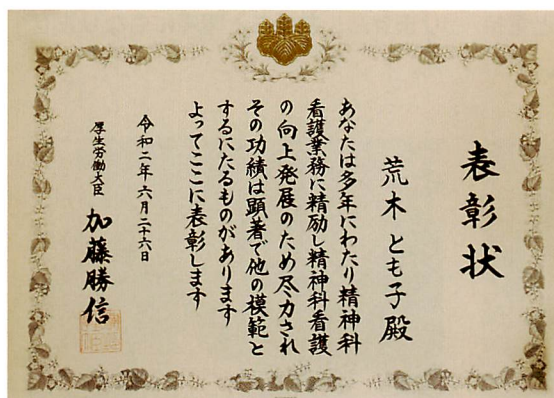 表彰状
荒木とも子殿
あなたは多年にわたり精神科
看護業務に精励し精神科看護
の向上発展のため尽力され
その功績は顕著で他の模範と
するにたるものがあります
よってここに表彰します
令和二年六月二十六日
厚生労働大臣 加藤勝信